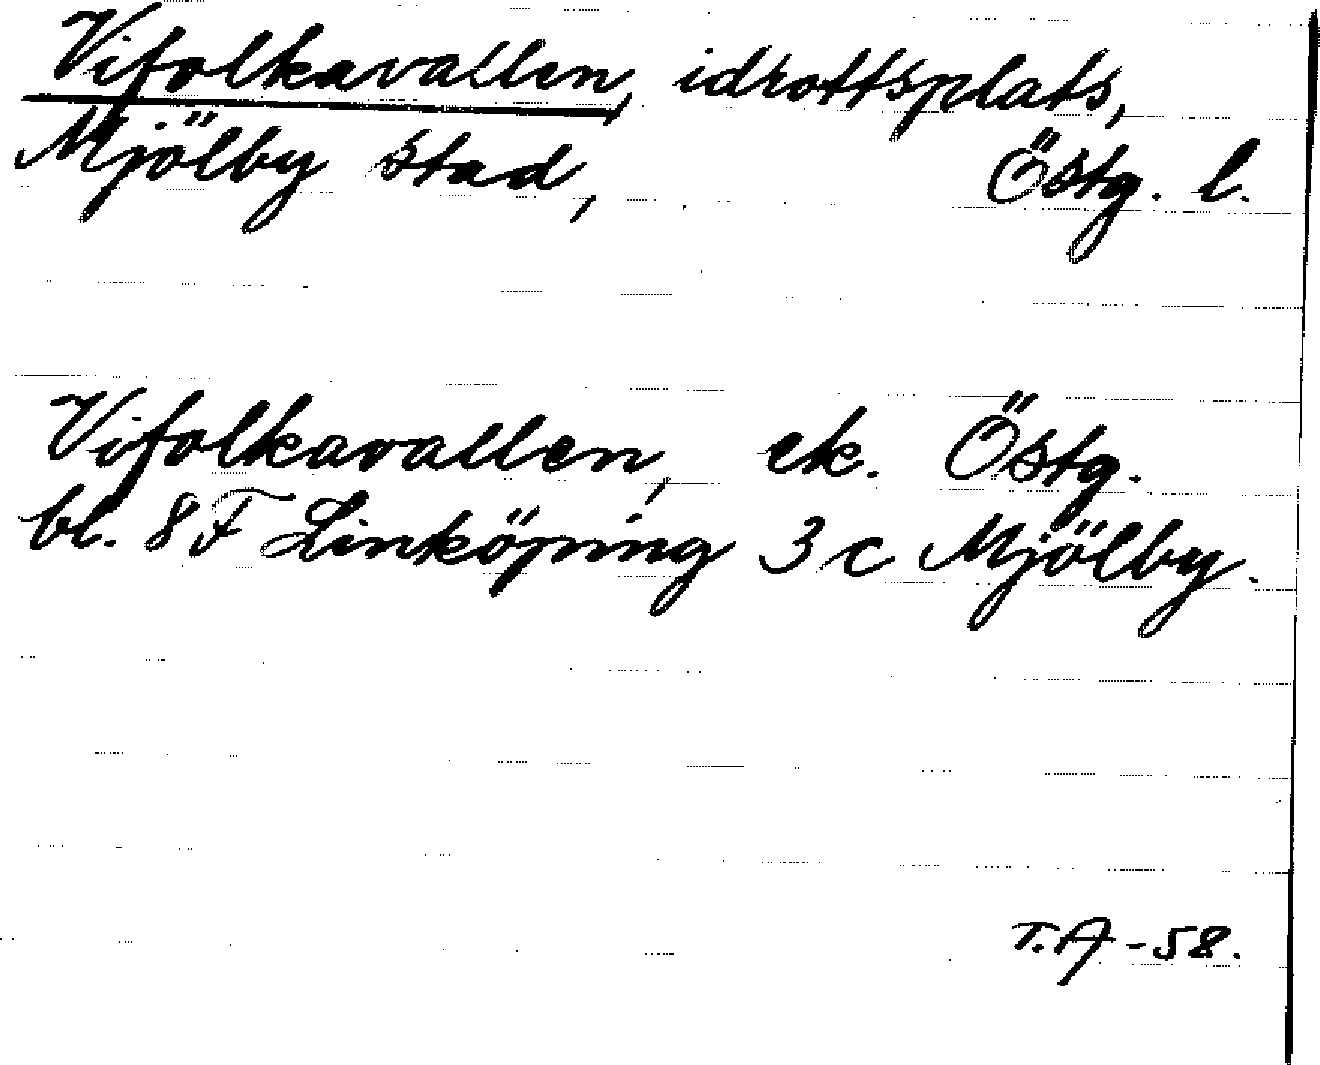 Vifolkavallen, idrottsplats,
Mjölby stad, Östg. l.
Vifolkavallen, ek. Östg.
bl. 8 F Linköping 3 c Mjölby.
T.A -58.